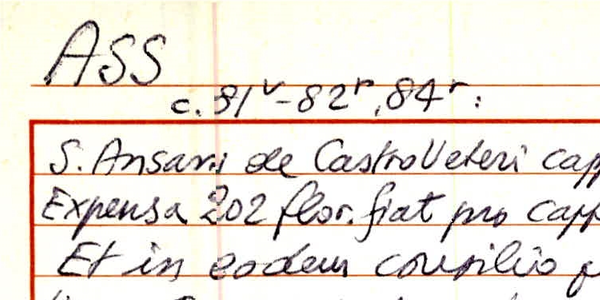 ASS
c. 81v-82r, 84r:
S. Ansani de CastroVeteri capp
Expensa 202 flor. fiat pro capp
Et in eodem consilio